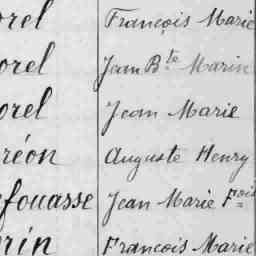 orel François Marie
orel Jean B.te Marin
orel Jean Marie
réon Auguste Henry
fouasse Jean Marie Fois
rin François Marie